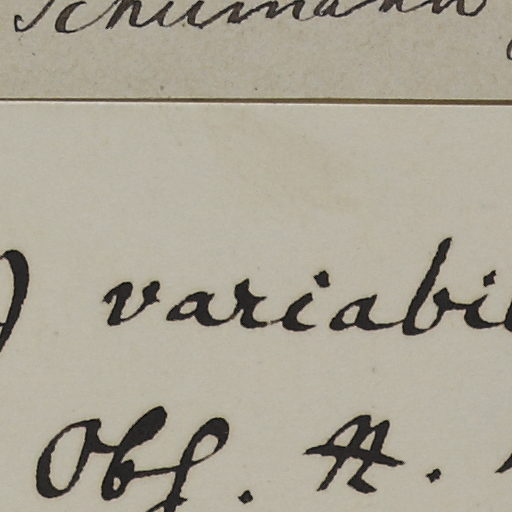 Schumann
) variabil
Obs. H.